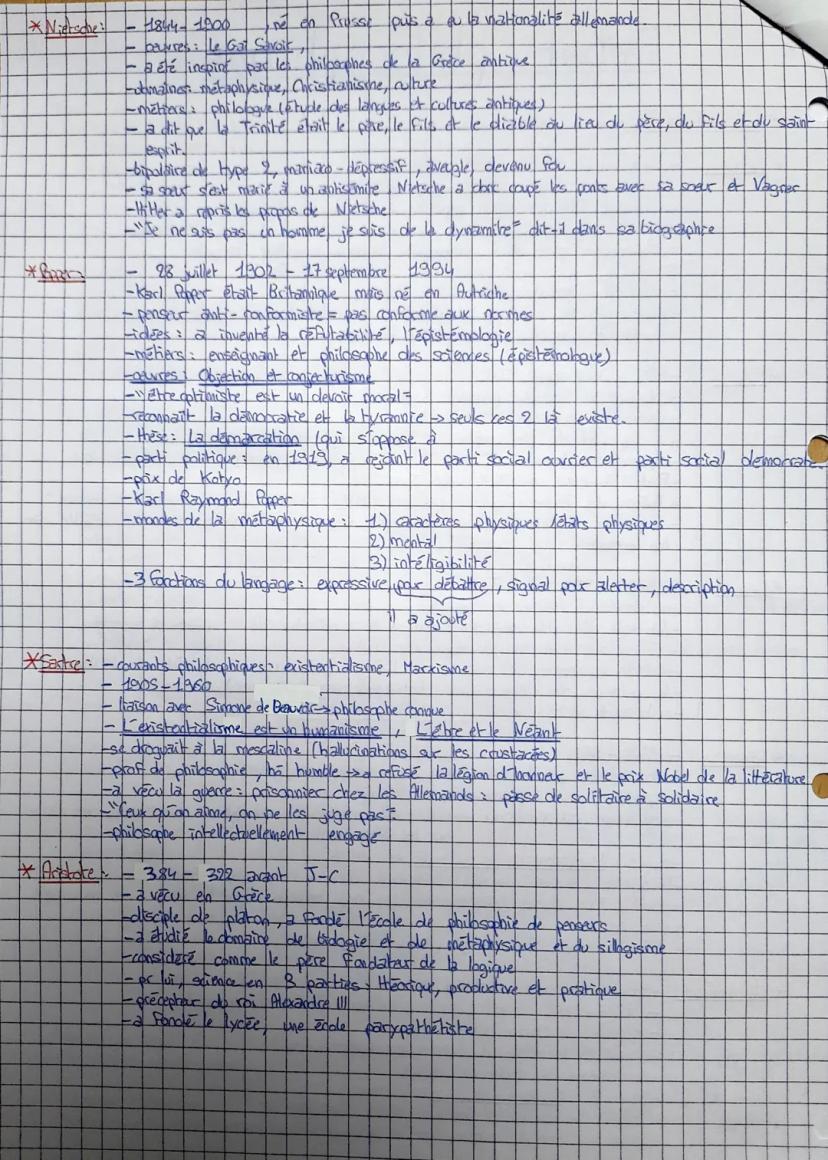 * Nietsche : - 1844 - 1900 , né en Prusse puis a eu la nationalité allemande.
- oeuvres : Le Gai Savoir,
- a été inspiré par les philosophes de la Grèce antique
- domaines : métaphysique, Christianisme, culture
- métiers : philologue (étude des langues et cultures antiques)
- a dit que la Trinité était le père, le fils et le diable au lieu du père, du fils et du saint
esprit.
- bipolaire de type 2, maniaco-dépressif, aveugle, devenu fou
- sa soeur s'est marié à un antisémite, Nietsche a donc coupé les ponts avec sa soeur et Vagner
- Hitler a repris les propos de Nietsche
- "Je ne suis pas un homme, je suis de la dynamite" dit-il dans sa biographie
* Popper : - 28 juillet 1902 - 17 septembre 1994
- Karl Popper était Britannique mais né en Autriche
- penseur anti-conformiste = pas conforme aux normes
- idées : a inventé la réfutabilité, l'épistémologie
- métiers : enseignant et philosophe des sciences (épistémologue)
- oeuvres : Objection et conjecturisme
- "être optimiste est un devoir moral"
- reconnaît la démocratie et la tyrannie → seuls ces 2 là existe.
- thèse : La démarcation (qui s'oppose à
- parti politique : en 1919, a rejoint le parti social ouvrier et parti social démocrate
- prix de Kotyo
- Karl Raymond Popper
- mondes de la métaphysique : 1.) caractères physiques /états physiques
2) mental
3) intéligibilité
- 3 fonctions du langage : expressive, pour débattre, signal pour alerter, description
il a ajouté
* Sartre : - courants philosophiques : existentialisme, Marxisme
- 1905 - 1960
- liaison avec Simone de Beauvoir → philosophe connue
- L'existentialisme est un humanisme, L'être et le Néant
- se droguait à la mescaline (hallucinations sur les crustacés)
- prof de philosophie, humble → a refusé la légion d'honneur et le prix Nobel de la littérature
- a vécu la guerre : prisonnier chez les Allemands : passe de solitaire à solidaire
- "Ceux qu'on aime, on ne les juge pas"
- philosophe intellectuellement engagé
* Aristote : - 384 - 322 avant J-C
- a vécu en Grèce
- disciple de platon, a fondé l'école de philosophie de penseurs
- a étudié le domaine de biologie et de métaphysique et du sillogisme
- considéré comme le père fondateur de la logique
- pr lui, science en 3 parties : théorique, productive et pratique
- précepteur du roi Alexandre III
- a fondé le lycée, une école parypathétiste